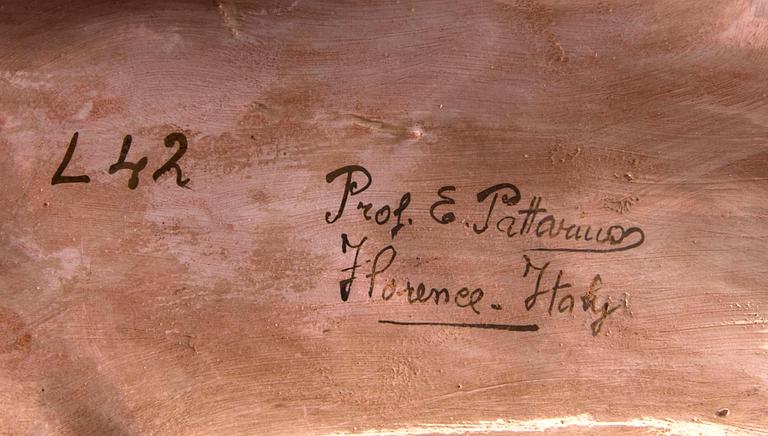 L 42
Prof. E. Pattarino
Florence - Italy